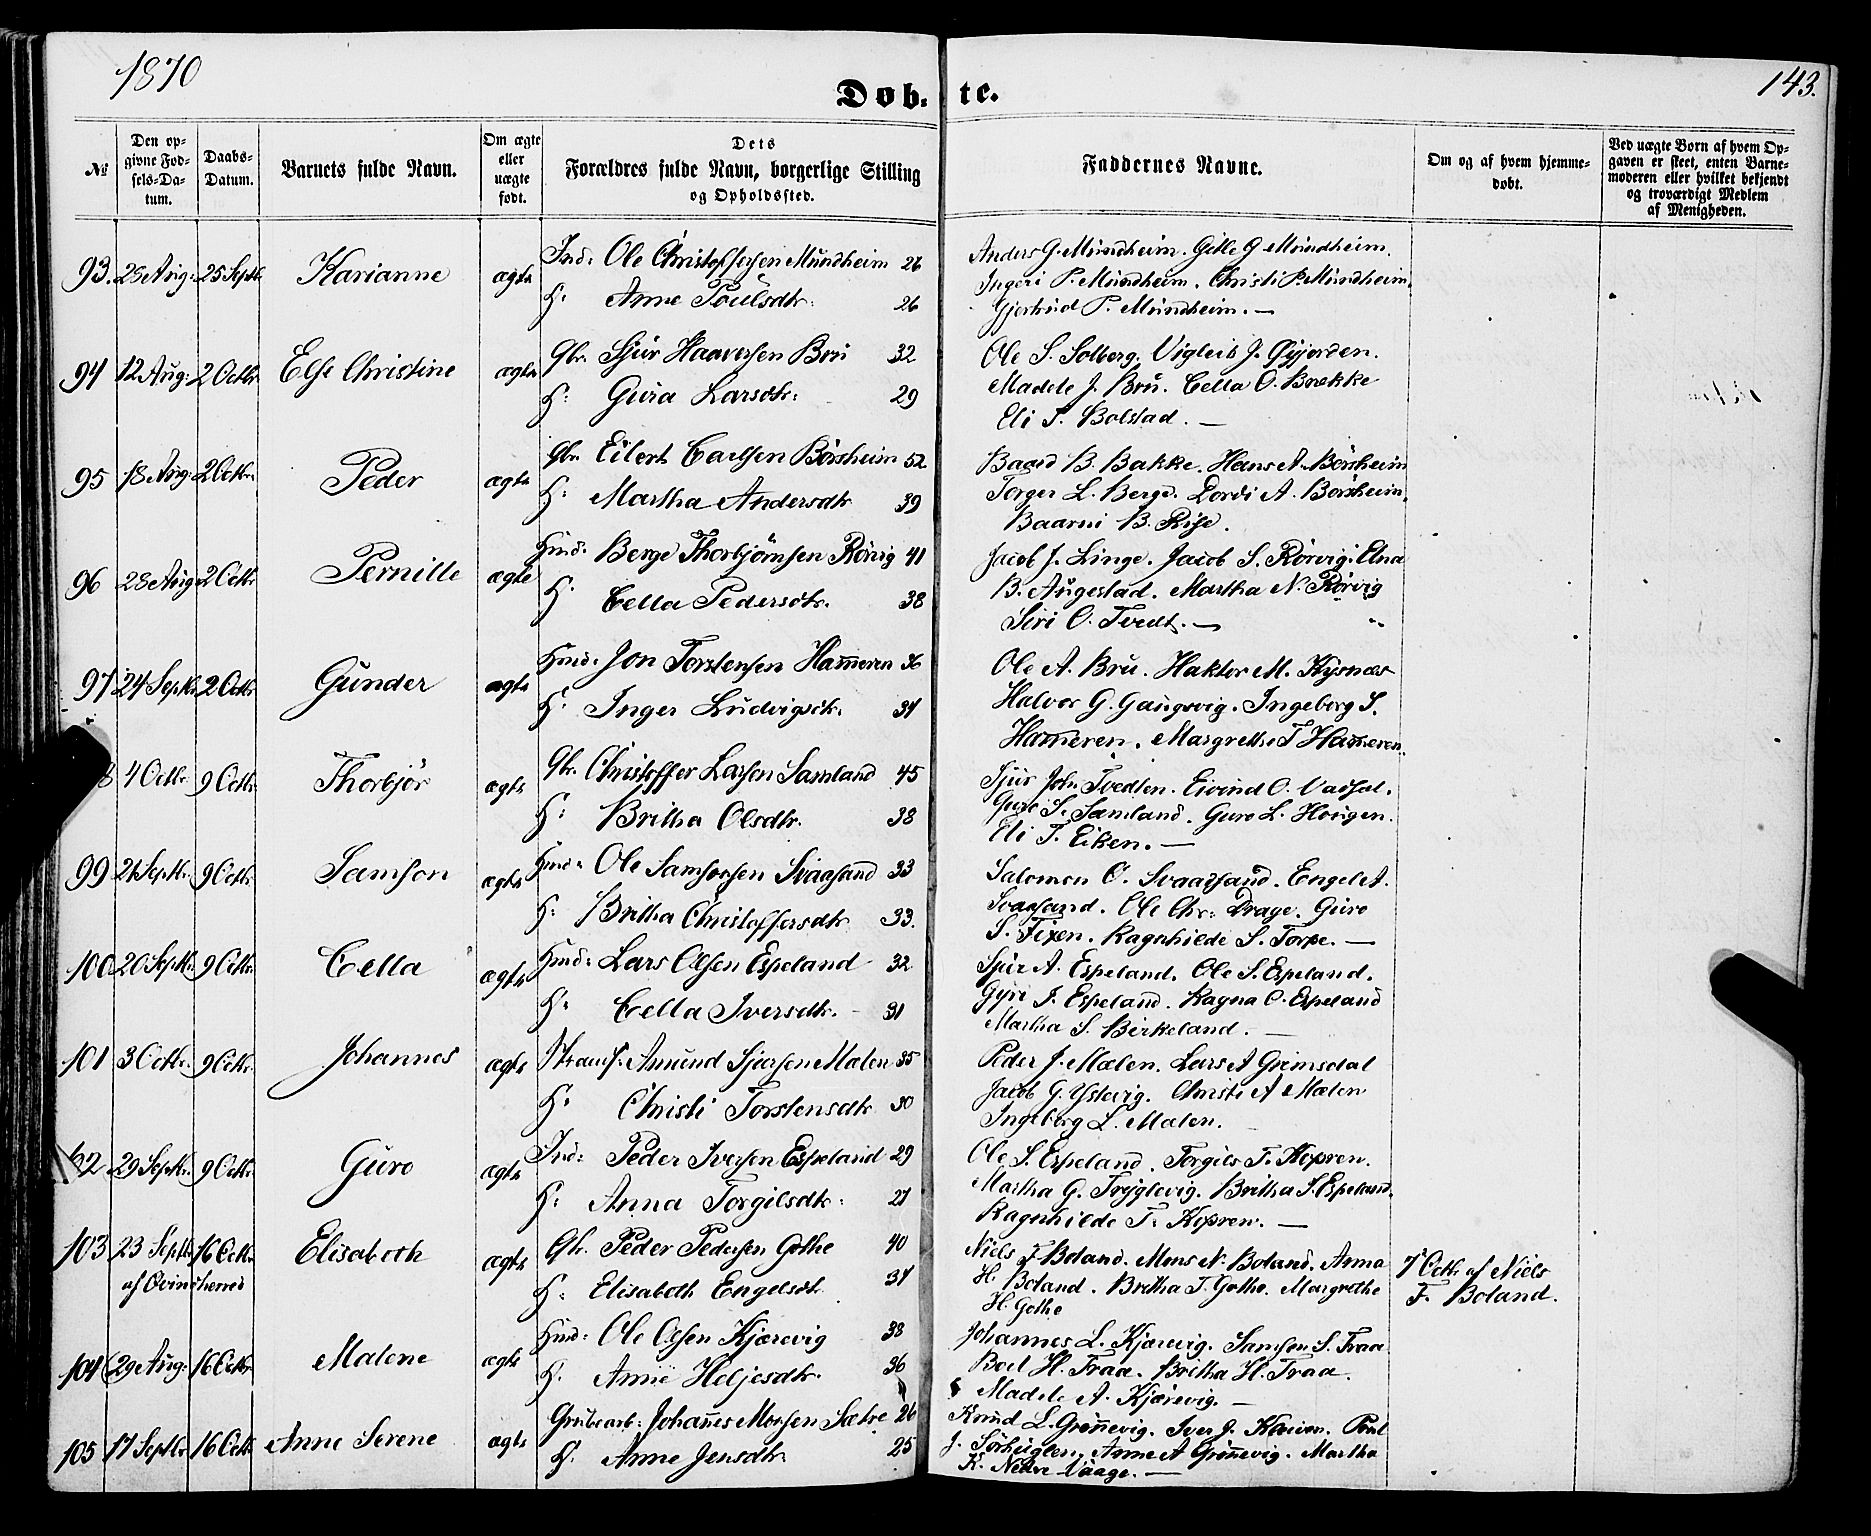 1870
143.
Døb. te.
No
Den op-
givne Fød-
sels-Da-
tum.
Daabs-
Datum.
Barnets fulde Navn.
Om ægte
eller
uægte
født.
Dets
Forældres fulde Navn, borgerlige Stilling
og Opholdssted.
Faddernes Navne.
Om og af hvem hjemme-
døbt.
Ved uægte Børn af hvem Op-
gaven er skeet, enten Barne-
moderen eller hvilket bekjendt
og troværdigt Medlem
af Menigheden.
93. 25 Aug: 25 Septb. Karianne ægte Ind: Ole Christoffersen Mundheim 26
H: Anne Poulsdtr. 26
Anders G. Mundheim. Gitle G. Mundheim.
Ingeri P. Mundheim. Christi P. Mundheim.
Gjertrud P. Mundheim. —
94 12 Aug: 2 Octbr. Else Christine ægte Gbr. Sjur Haaversen Bru 32
H: Gura Larsdtr: 29
Ole S. Solberg. Vigleik J. Gjerden.
Madele J. Bru. Cella O. Brekke
Eli T. Bolstad. —
95 18 Aug. 2 Octbr. Peder ægte Gbr. Eilert Carlsen Børsheim 52
H: Martha Andersdtr 39
Baard B. Bakke. Hans A. Børsheim
Torger L. Berge. Dordi A. Børsheim.
Baarni B. Rise.
96 28 Aug. 2 Octbr. Pernille ægte Husd: Berge Thorbjørnsen Rørvig 41
H: Cella Pedersdtr. 38
Jacob J. Linge. Jacob S. Rørvig. Elna
B. Augestad. Martha N. Rørvig
Siri O. Tvedt. —
97 24 Septbr. 2 Octbr. Gunder ægte Husd: Jon Torstensen Hammeren 36
H: Inger Ludvigsdtr. 34
Ole A. Bru. Haktor M. Kysnæs
Halvor G. Gangsvig. Ingeborg S.
Hammeren. Margrethe T. Hammeren.
8 4 Octbr. 9 Octbr. Thorbjør ægte Gbr. Christoffer Larsen Samland 45
H: Britha Olsdtr. 38
Sjur Joh. Tvedten. Eivind O.
Guri S. Samland. Guro L. Hougen.
Eli T. Eiken. —
99 21 Septbr. 9 Octbr. Samson ægte Husd: Ole Samsonsen Svaasand 33
H: Britha Christoffersdtr 33.
Salomon O. Svaasand. Engel A.
Svaasand. Ole Chr: Drage. Guro
S. Fixen. Ragnhilde S. Torpe. —
100 20 Septbr. 9 Octbr. Cella ægte Husd: Lars Olsen Espeland 32
H: Cella Iversdtr. 31
Sjur A. Espeland. Ole S. Espeland.
Gyri I. Espeland. Ragna O. Espeland
Martha S. Birkeland. —
101 3 Octbr. 9 Octbr. Johannes ægte Amund Sjursen Mælen 35
H: Christi Torstensdtr 30
Peder J. Mælen. Lars A Grimsdal
Jacob G. Ystevig. Christi A Mælen
Ingeborg L. Mælen.
102 29 Septbr. 9 Octbr. Guro ægte Ind: Peder Iversen Espeland 29
H: Anna Torgilsdtr: 21
Ole S. Espeland. Torgils T. Kopren.
Martha G. Tryglevig. Britha S. Espeland.
Ragnhilde T. Kopren. —
103 23 Septbr. 16 Octbr. Elisabeth ægte Gbr. Peder Pedersen Gothe 40
af Qvindherred
H: Elisabeth Engelsdt. 34
Niels F. Boland. Mons N. Boland. Anna
H. Boland. Britha T. Gothe. Margrethe
H. Gothe
7 Octbr. af Niels
F. Boland.
104 29 Aug: 16 Octbr. Malene ægte Husd: Ole Olsen Kjærevig 38
H. Anne Heljesdtr. 36
Johannes L. Kjærevig. Samson S. Traa
Boel H. Traa. Britha H. Traa.
Madele A. Kjærevig. —
105 17 Septbr. 16 Octb. Anne Serene ægte Grubearb: Johannes Monsen Sætre 26
H. Anne Jensdtr. 25
Knud L. Grønnevig. Iver J. Poul
J. Sørhuglen. Anne A Grønnevig. Martha
K. Nedre Vaage. —